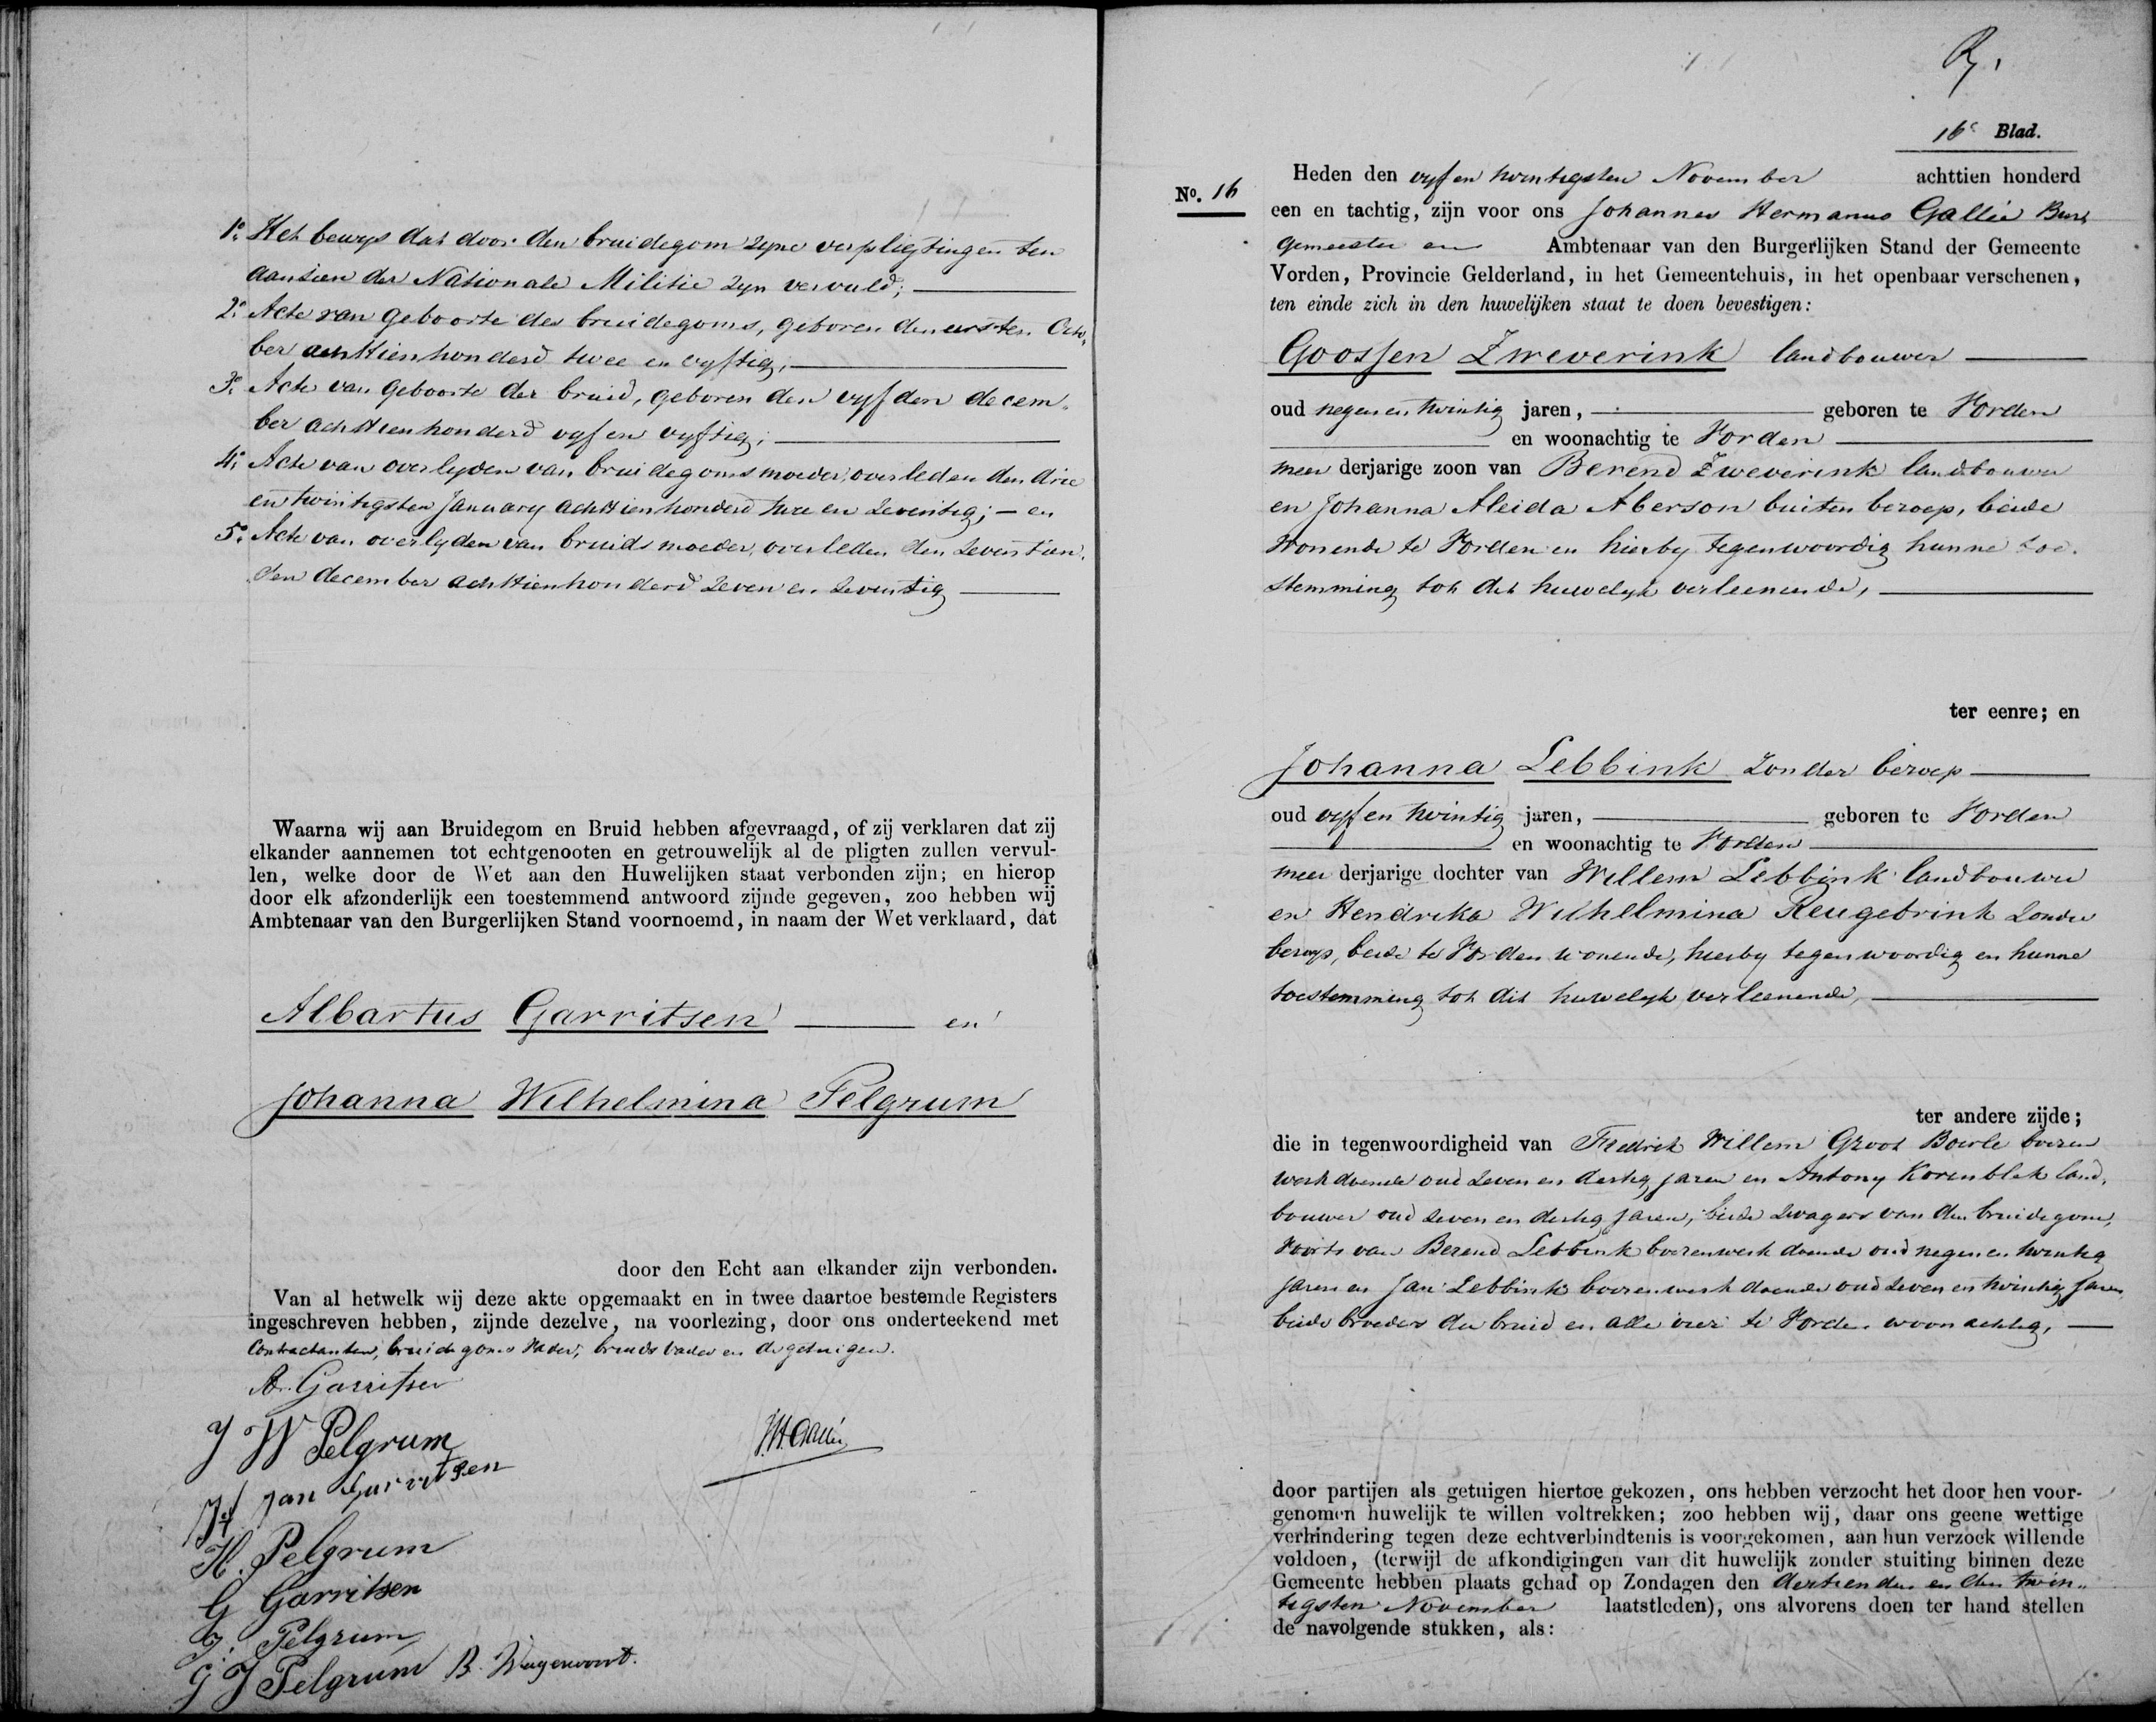 1º. Het bewys dat door den bruidegom zyne verpligtingen ten
aanzien der Nationale Militie zyn vervuld;
2º. Acte van geboorte des bruidegoms, geboren den eersten Octo,
ber achttienhonderd twee en vyftig;
3º. Acte van geboorte der bruid, geboren den vyfden decem„
ber achttienhonderd vyf en vyftig;
4º. Acte van overlyden van bruidegoms moeder, overleden den drie
en twintigsten January achttienhonderd twee en zeventig; – en
5º. Acte van overlyden van bruids moeder, overleden den zeventien„
den december achttienhonderd zeven en zeventig
Waarna wij aan Bruidegom en Bruid hebben afgevraagd, of zij verklaren dat zij
elkander aannemen tot echtgenooten en getrouwelijk al de pligten zullen vervul-
len, welke door de Wet aan den Huwelijken staat verbonden zijn; en hierop
door elk afzonderlijk een toestemmend antwoord zijnde gegeven, zoo hebben wij
Ambtenaar van den Burgerlijken Stand voornoemd, in naam der Wet verklaard, dat
Albartus Garritsen en
Johanna Wilhelmina Pelgrum
door den Echt aan elkander zijn verbonden.
Van al hetwelk wij deze akte opgemaakt en in twee daartoe bestemde Registers
ingeschreven hebben, zijnde dezelve, na voorlezing, door ons onderteekend met
Contractanten, bruidegoms vader, bruids vader en de getuigen.
A. Garritsen
J W Pelgrum
J.H. Gallée
Jan Garritsen
H. Pelgrum
G Garritsen
J. Pelgrum
G J Pelgrum B. Wagenvoort.
16e Blad.
No. 16
Heden den vyf en twintigsten November achttien honderd
een en tachtig, zijn voor ons Johannes Hermanus Gallée Burg
gemeester en Ambtenaar van den Burgerlijken Stand der Gemeente
Vorden, Provincie Gelderland, in het Gemeentehuis, in het openbaar verschenen,
ten einde zich in den huwelijken staat te doen bevestigen:
Goossen Zweverink landbouwer
oud negen en twintig jaren, geboren te Vorden
en woonachtig te Vorden
meer derjarige zoon van Berend Zweverink landbouwer
en Johanna Aleida Aberson buiten beroep, beide
wonende te Vorden en hierby tegenwoordig hunne toe„
stemming tot dit huwelyk verleenende,
ter eenre; en
Johanna Lebbink zonder beroep
oud vyf en twintig jaren, geboren te Vorden
en woonachtig te Vorden
meer derjarige dochter van Willem Lebbink landbouwer
en Hendrika Wilhelmina Reugebrink zonder
beroep, beide te Vorden wonende, hierby tegenwoordig en hunne
toestemming tot dit huwelyk verleenende,
ter andere zijde;
die in tegenwoordigheid van Fredrik Willem Groot Boerle boeren
werk doende oud zeven en dertig jaren en Antony Korenblek land,
bouwer oud zeven en dertig jaren, beide zwagers van den bruidegom,
voorts van Berend Lebbink boerenwerk doende oud negen en twintig
jaren en Jan Lebbink boerenwerk doende oud zeven en twintig jaren,
beide broeders der bruid en alle vier te Vorden woonachtig,
door partijen als getuigen hiertoe gekozen, ons hebben verzocht het door hen voor-
genomen huwelijk te willen voltrekken; zoo hebben wij, daar ons geene wettige
verhindering tegen deze echtverbindtenis is voorgekomen, aan hun verzoek willende
voldoen, (terwijl de afkondigingen van dit huwelijk zonder stuiting binnen deze
Gemeente hebben plaats gehad op Zondagen den dertienden en den twin„
tigsten November laatstleden), ons alvorens doen ter hand stellen
de navolgende stukken, als: